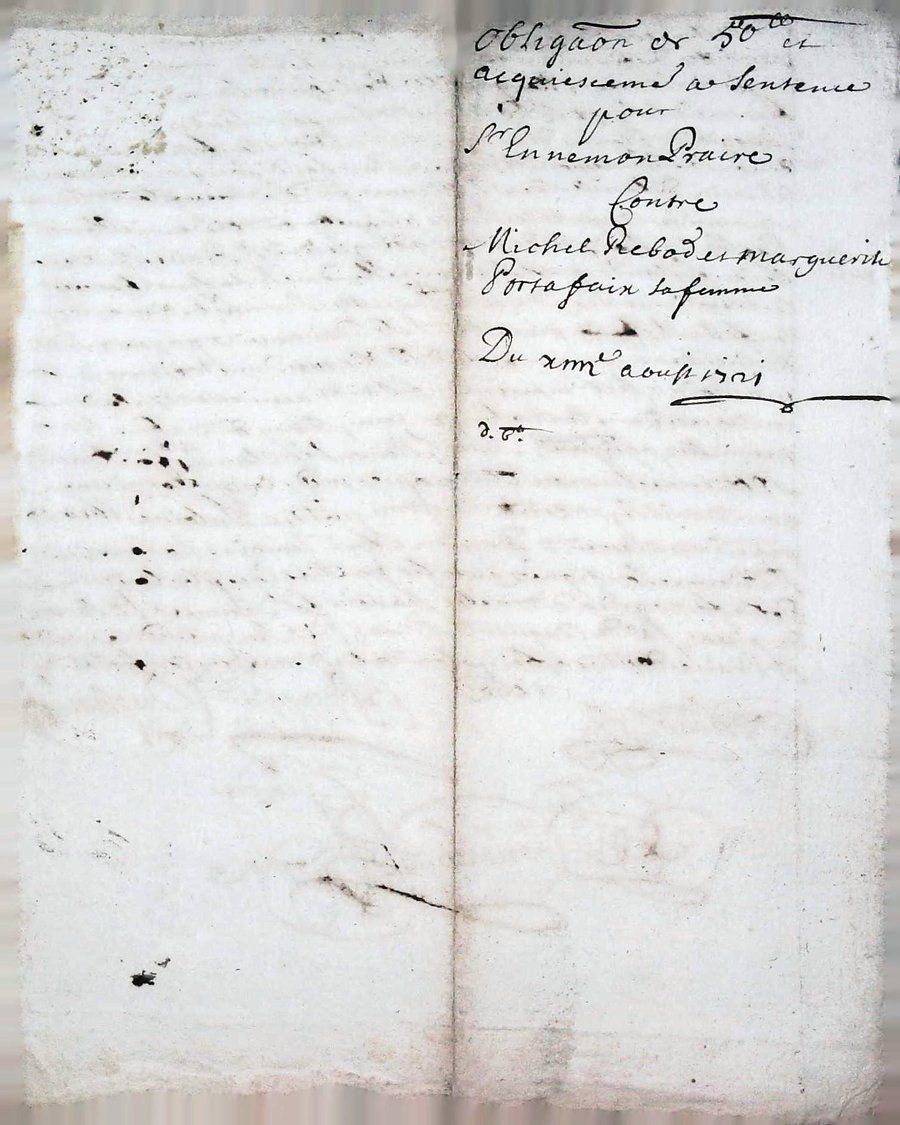 Obligaõn de 50 ᵗᵗ et
acquiesceme͂ᵗ de Sentence
pour
Sr Ennemon Praire
Contre
Michel Rebod et marguerite
Portafaix sa femme
Du xiiiie aoust 1721